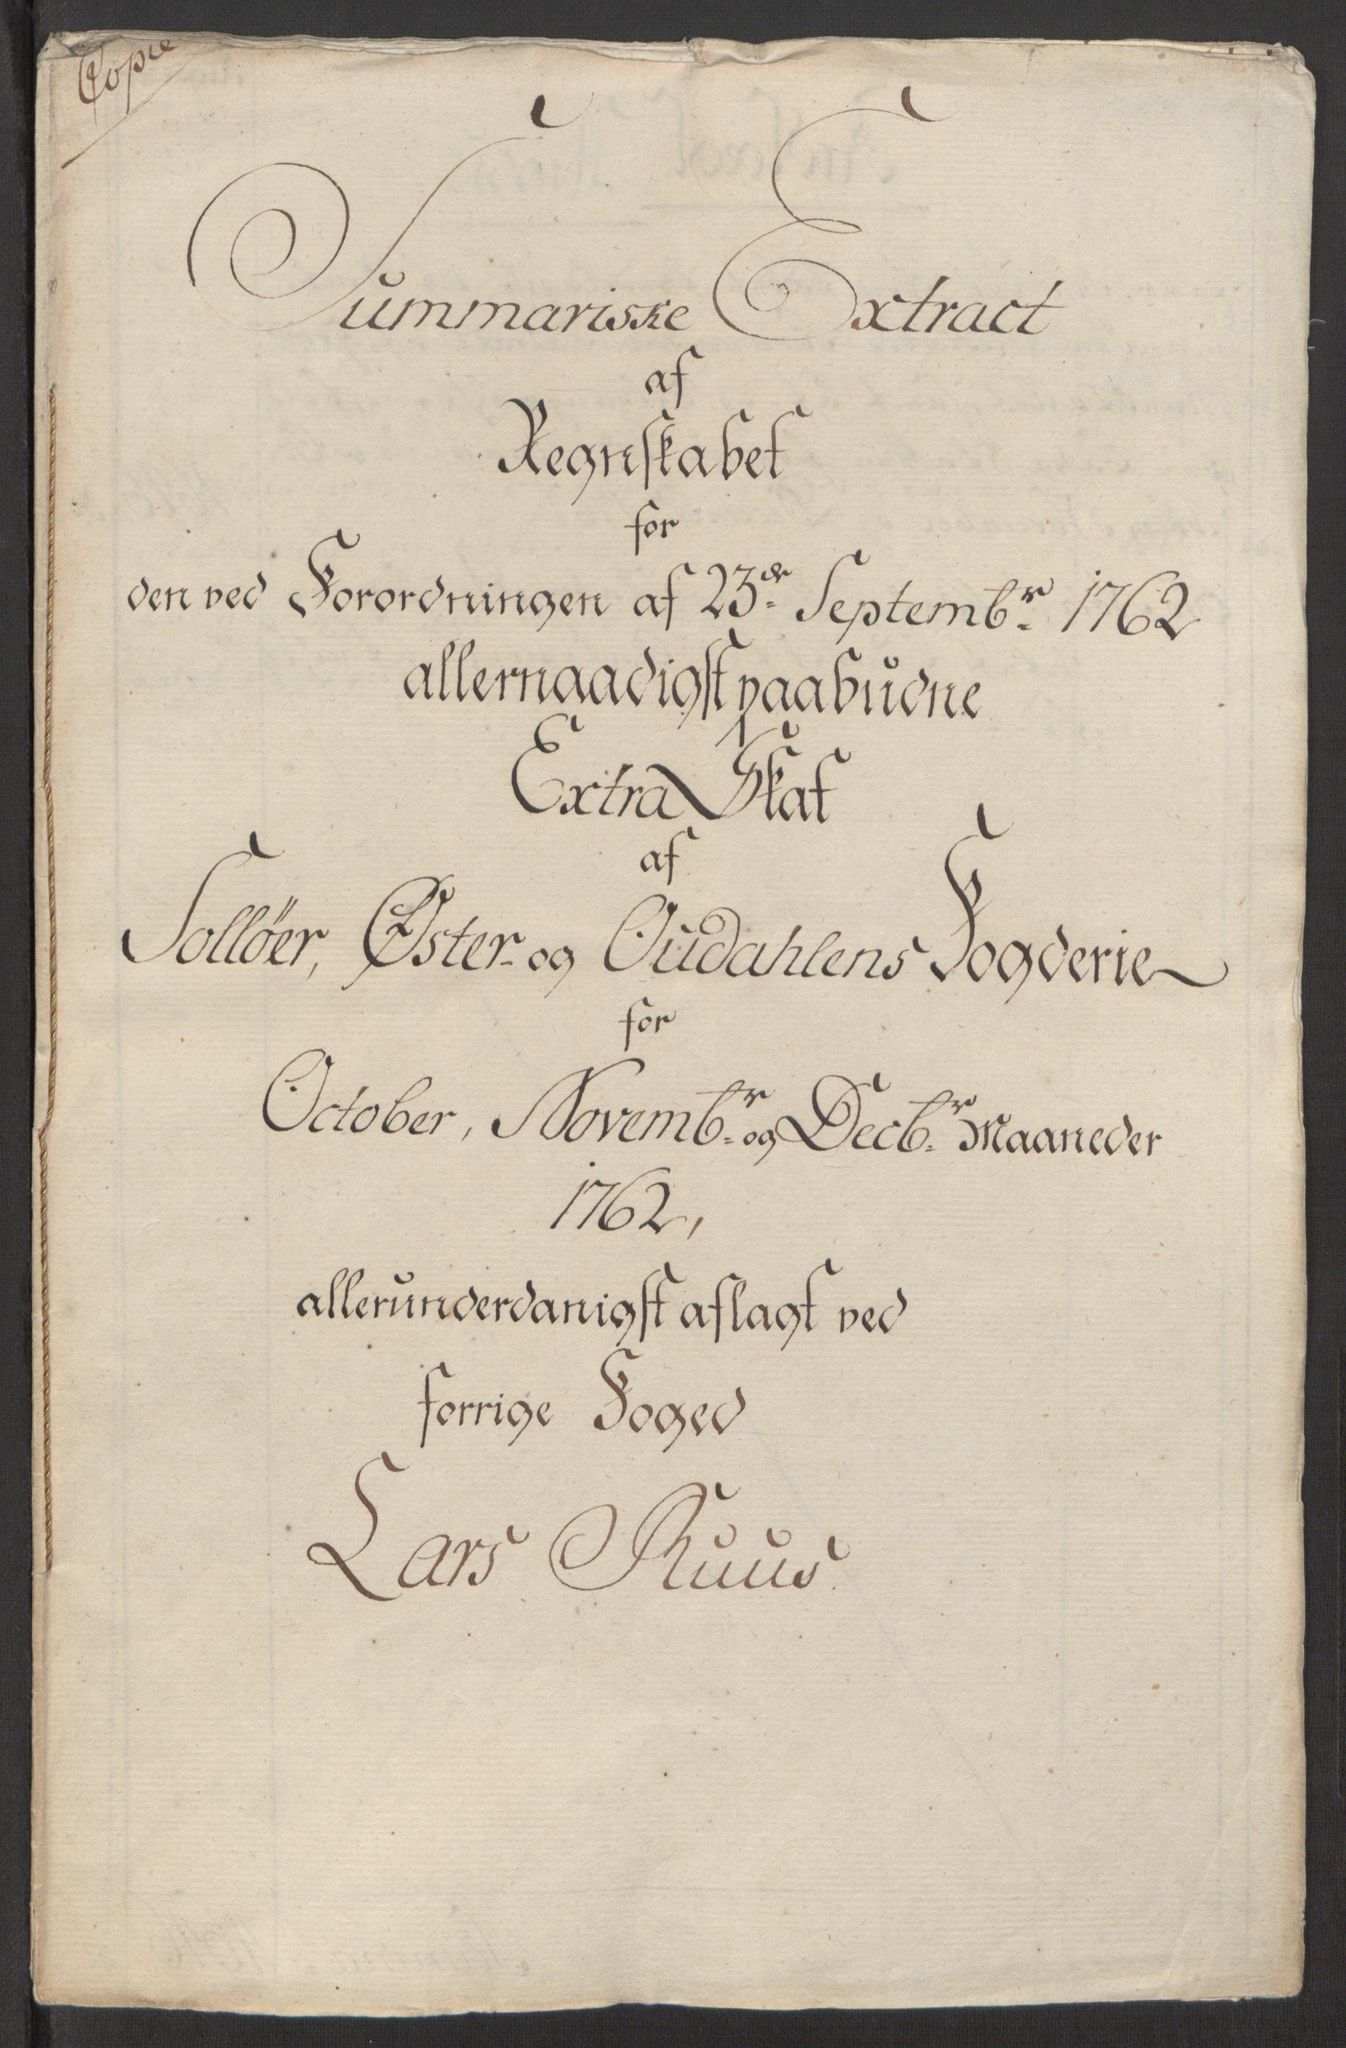 Copie
Summariske Extract
af
Regnskabet
for
den ved Forordningen af 23de Septembr. 1762
allernaadigst paabudne
Extra Skat
af
Solløer, Øster- og Oudahlens Fogderie
for
October, Novembr. og Decbr. Maaneder
1762,
allerunderdanigst aflagt ved
forrige Foged
Lars Ruus.